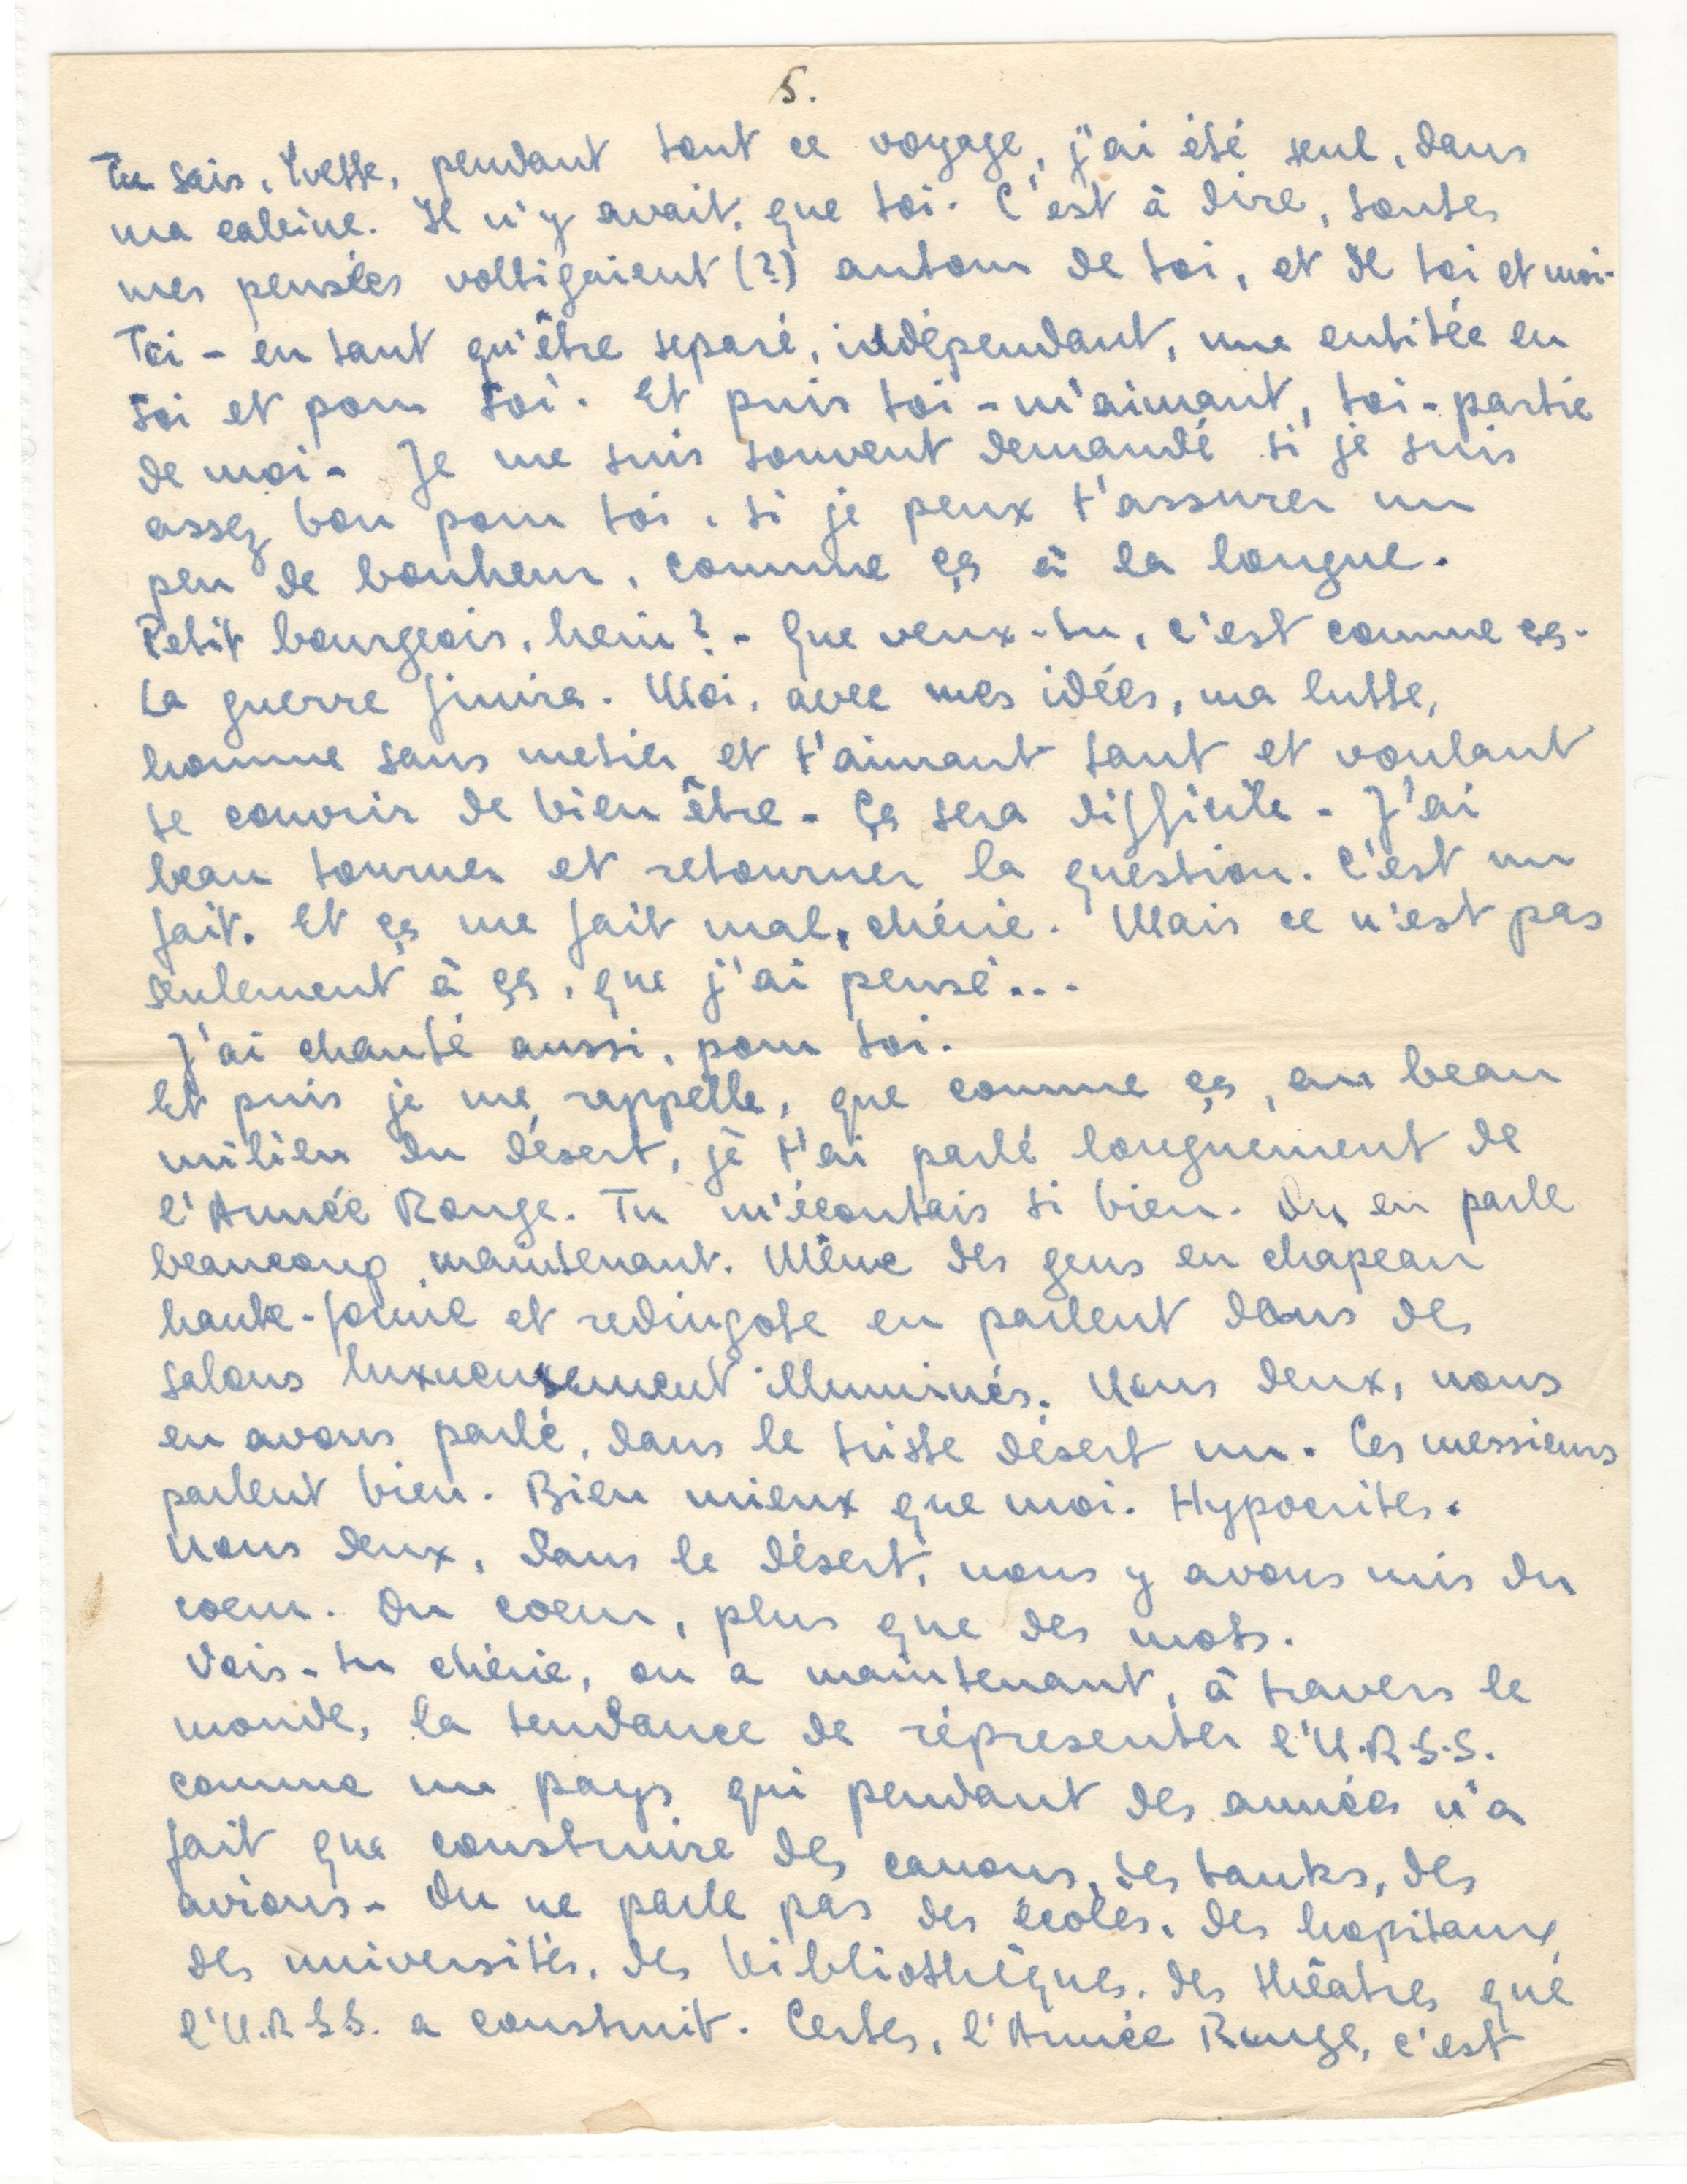 5.
Tu sais, Yvette, pendant tout ce voyage, j'ai été seul, dans
ma cabine. Il n'y avait, que toi. C'est à dire, toutes
mes pensées voltigaient (?) autour de toi, et de toi et moi.
Toi - en tant qu'être separé, indépendant, une entitée en
soi et pour soi. Et puis toi - m'aimant, toi - partie
de moi - Je me suis souvent demandé si je suis
assez bon pour toi, si je peux t'assurer un
peu de bonheur, comme ça à la longue.
Petit bourgeois, hein? - Que veux-tu, c'est comme ça.
La guerre finira. Moi, avec mes idées, ma lutte,
homme sans metier et t'aimant tant et voulant
te couvrir de bien être - Ça sera difficile - J'ai
beau tourner et retourner la question. C'est un
fait. Et ça me fait mal, chérie. Mais ce n'est pas
seulement à ça, que j'ai pensé...
J'ai chanté aussi, pour toi.
Et puis je me rappelle, que comme ça, au beau
milieu du désert, je t'ai parlé longuement de
l'Armée Rouge. Tu m'écoutais si bien. On en parle
beaucoup maintenant. Même des gens en chapeau
haute-forme et redingote en parlent dans des
salons luxueusement illuminés. Nous deux, nous
en avons parlé, dans le triste désert nu. Ces messieurs
parlent bien. Bien mieux que moi. Hypocrites.
Nous deux, dans le désert, nous y avons mis du
coeur. Du coeur, plus que des mots.
Vois-tu chérie, on a maintenant, à travers le
monde, la tendance de répresenter l'U.R.S.S.
comme un pays qui pendant des années n'a
fait que construire des canons, des tanks, des
avions - On ne parle pas des écoles, des hopitaux,
des universités, des bibliothèques, des théâtres que
l'U.R.S.S. a construit. Certes, l'Armée Rouge, c'est